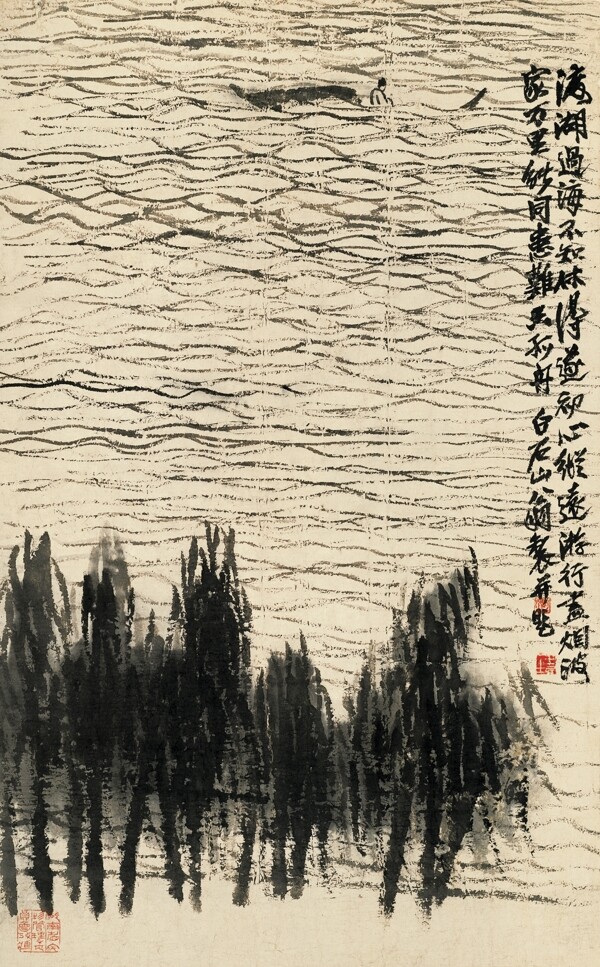 渡湖過海不知休得遂初心縱遠游行盡烟波
家万里能同患難只孤舟白石山翁製并題